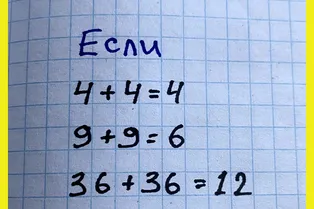 Если
4+4=4
9+9=6
36+36=12